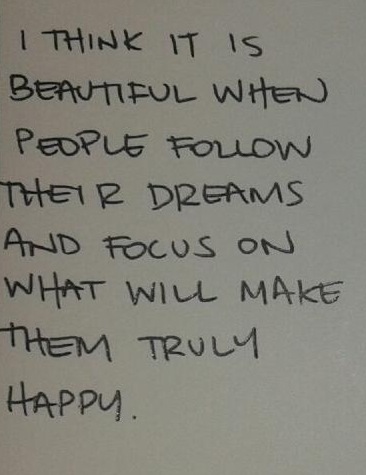 I THINK IT IS
BEAUTIFUL WHEN
PEOPLE FOLLOW
THEIR DREAMS
AND FOCUS ON
WHAT WILL MAKE
THEM TRULY
HAPPY.